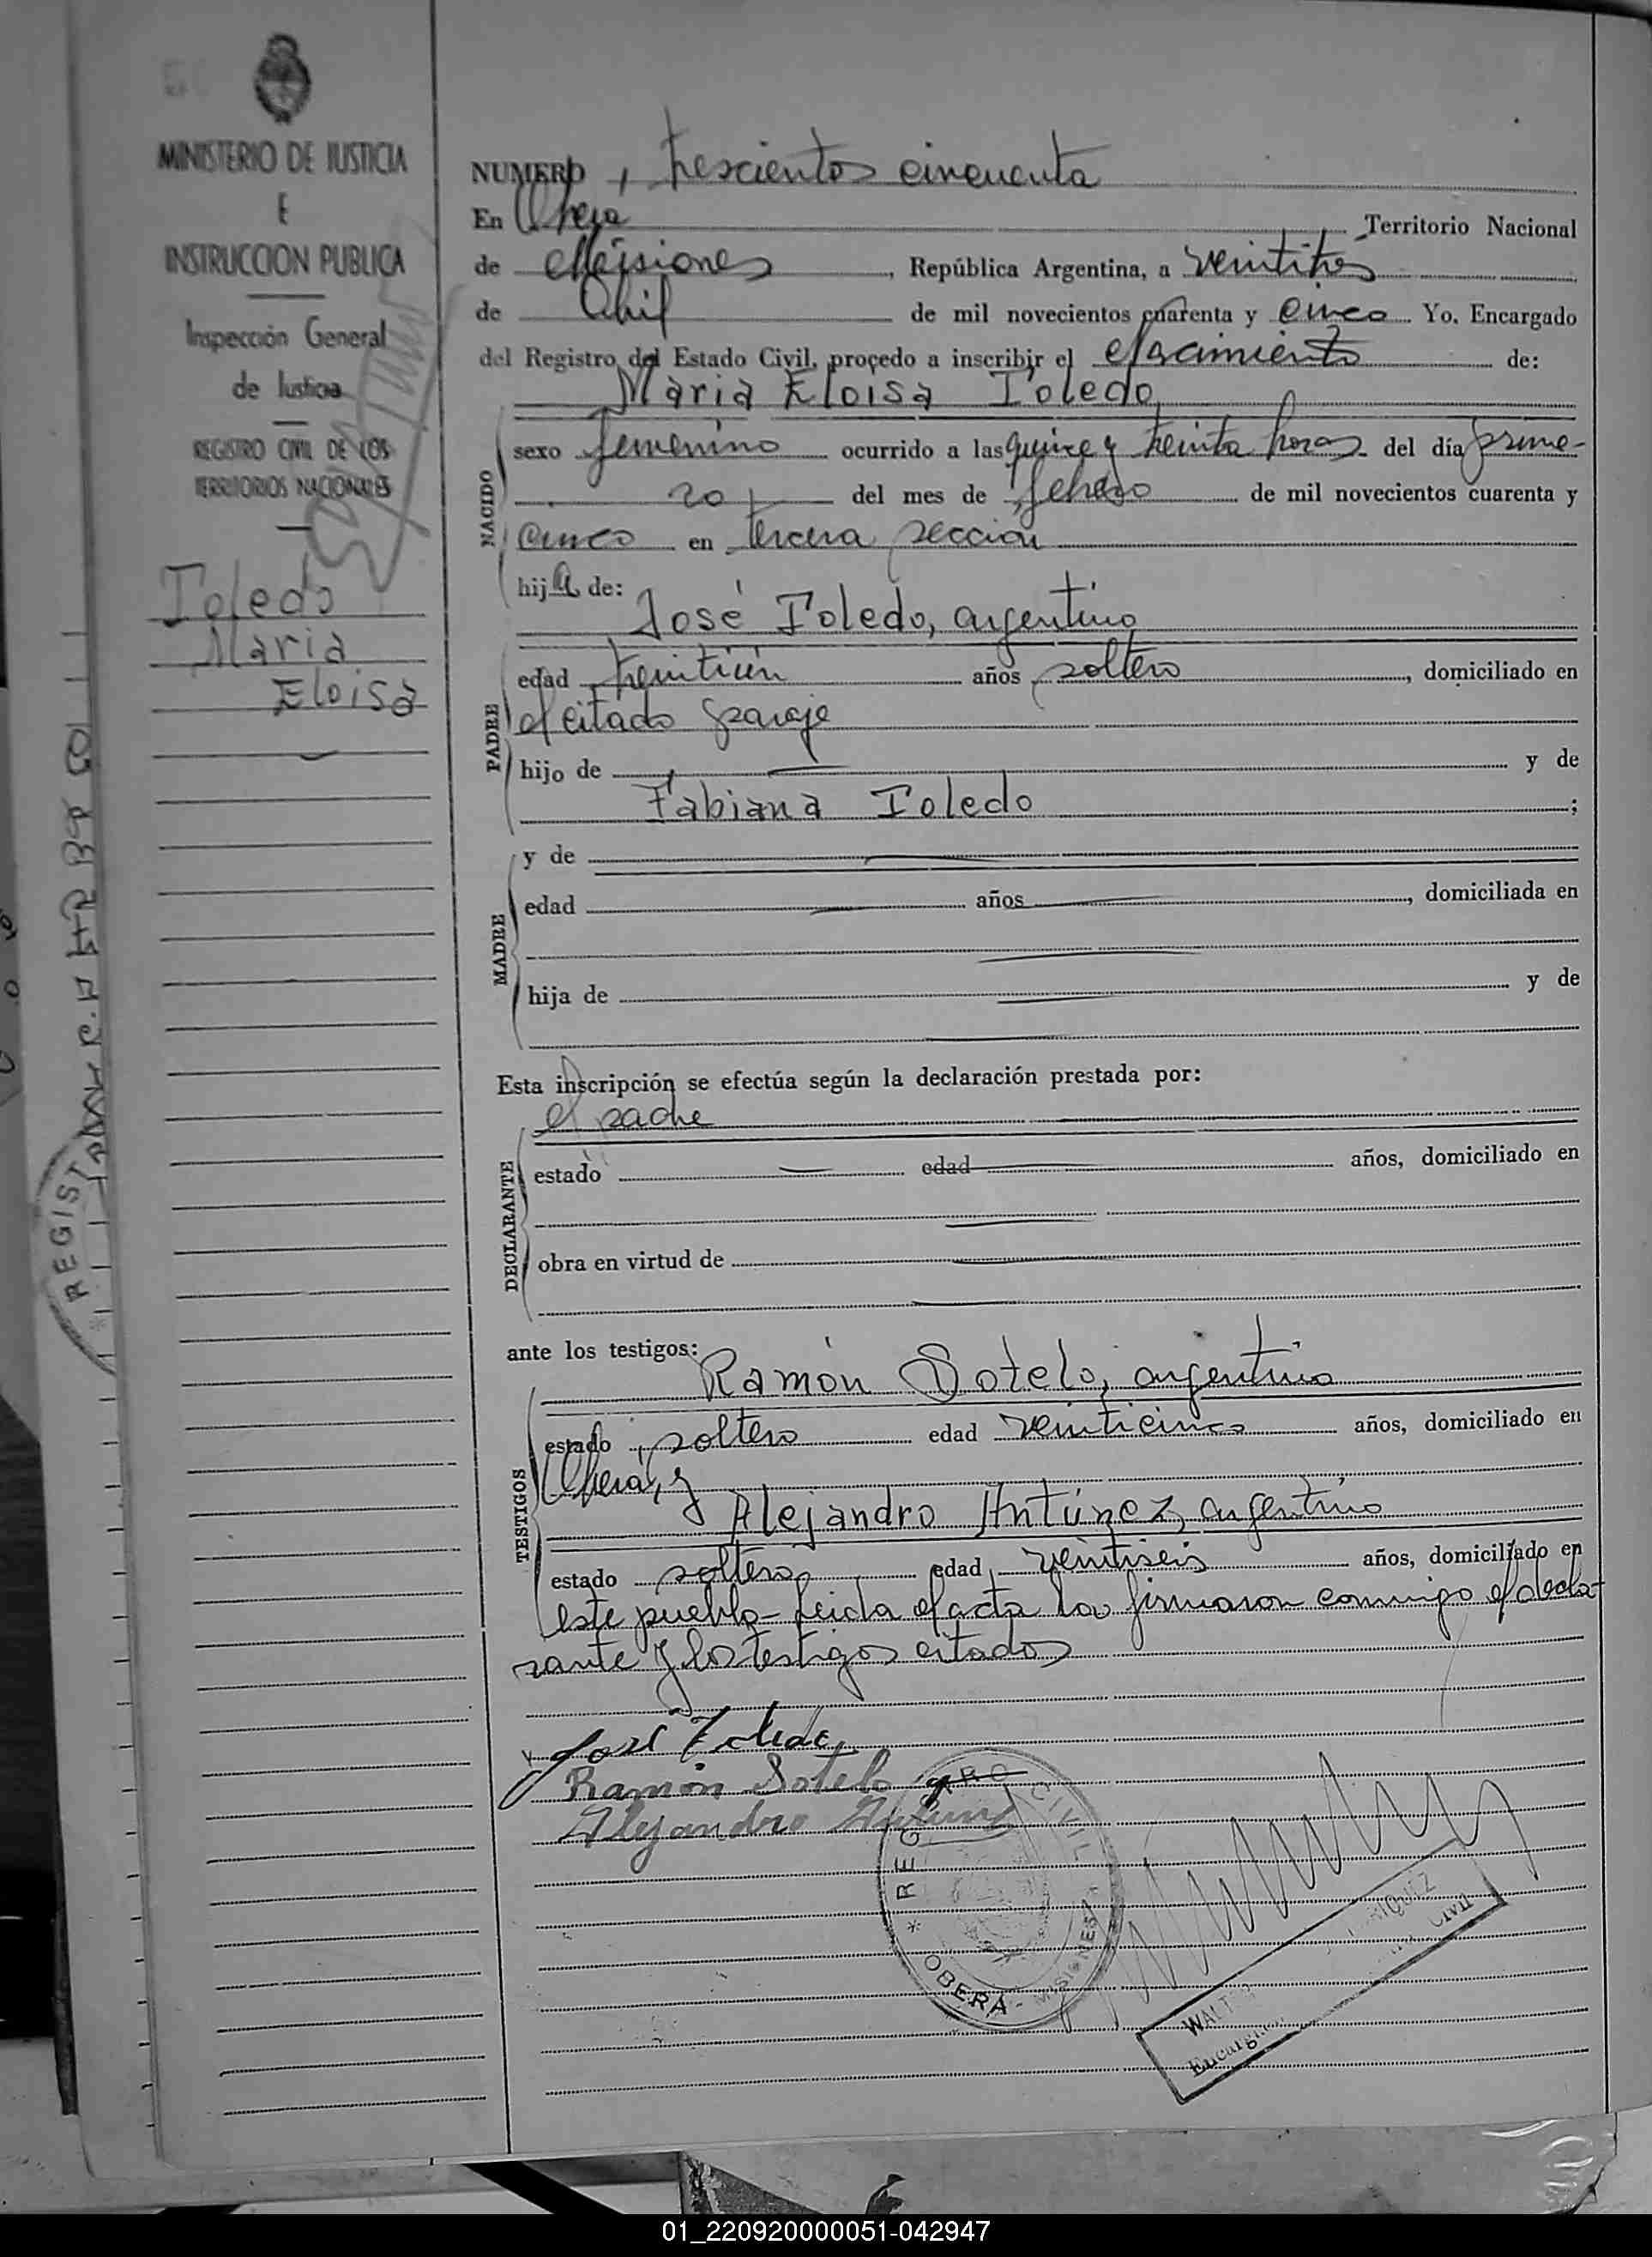 MINISTERIO DE JUSTICIA
E
INSTRUCCION PUBLICA
Inspección General
de Justicia
REGISTRO CIVIL DE LOS
TERRITORIOS NACIONALES
Toledo
Maria
Eloisa
NUMERO trescientos cincuenta
En Oberá Territorio Nacional
de Misiones, República Argentina, a veintitres
de Abril de mil novecientos cuarenta y cinco Yo, Encargado
del Registro del Estado Civil, procedo a inscribir el nacimiento de:
Maria Eloisa Toledo
NACIDO
sexo femenino ocurrido a las quince y treinta horas del día prime-
ro del mes de febrero de mil novecientos cuarenta y
cinco en tercera seccion
hija de:
José Toledo, argentino
PADRE
edad años soltero, domiciliado en
el citado paraje
hijo de y de
Fabiana Toledo ;
MADRE
y de
edad años, domiciliada en
hija de y de
Esta inscripción se efectúa según la declaración prestada por:
el padre
DECLARANTE
estado edad años, domiciliado en
obra en virtud de
ante los testigos:
Ramón Sotelo, argentino
TESTIGOS
estado soltero edad veinticinco años, domiciliado en
Oberá, y
Alejandro Antúnez, argentino
estado soltero edad veintiseis años, domiciliado en
este pueblo - Leida el acta la firmaron conmigo el decla-
rante y los testigos citados
José Toledo
Ramón Sotelo
Alejandro Antunez
REGISTRO CIVIL
* OBERÁ - MISIONES
WALT
Encarg Civil
REGIST
01_220920000051-042947